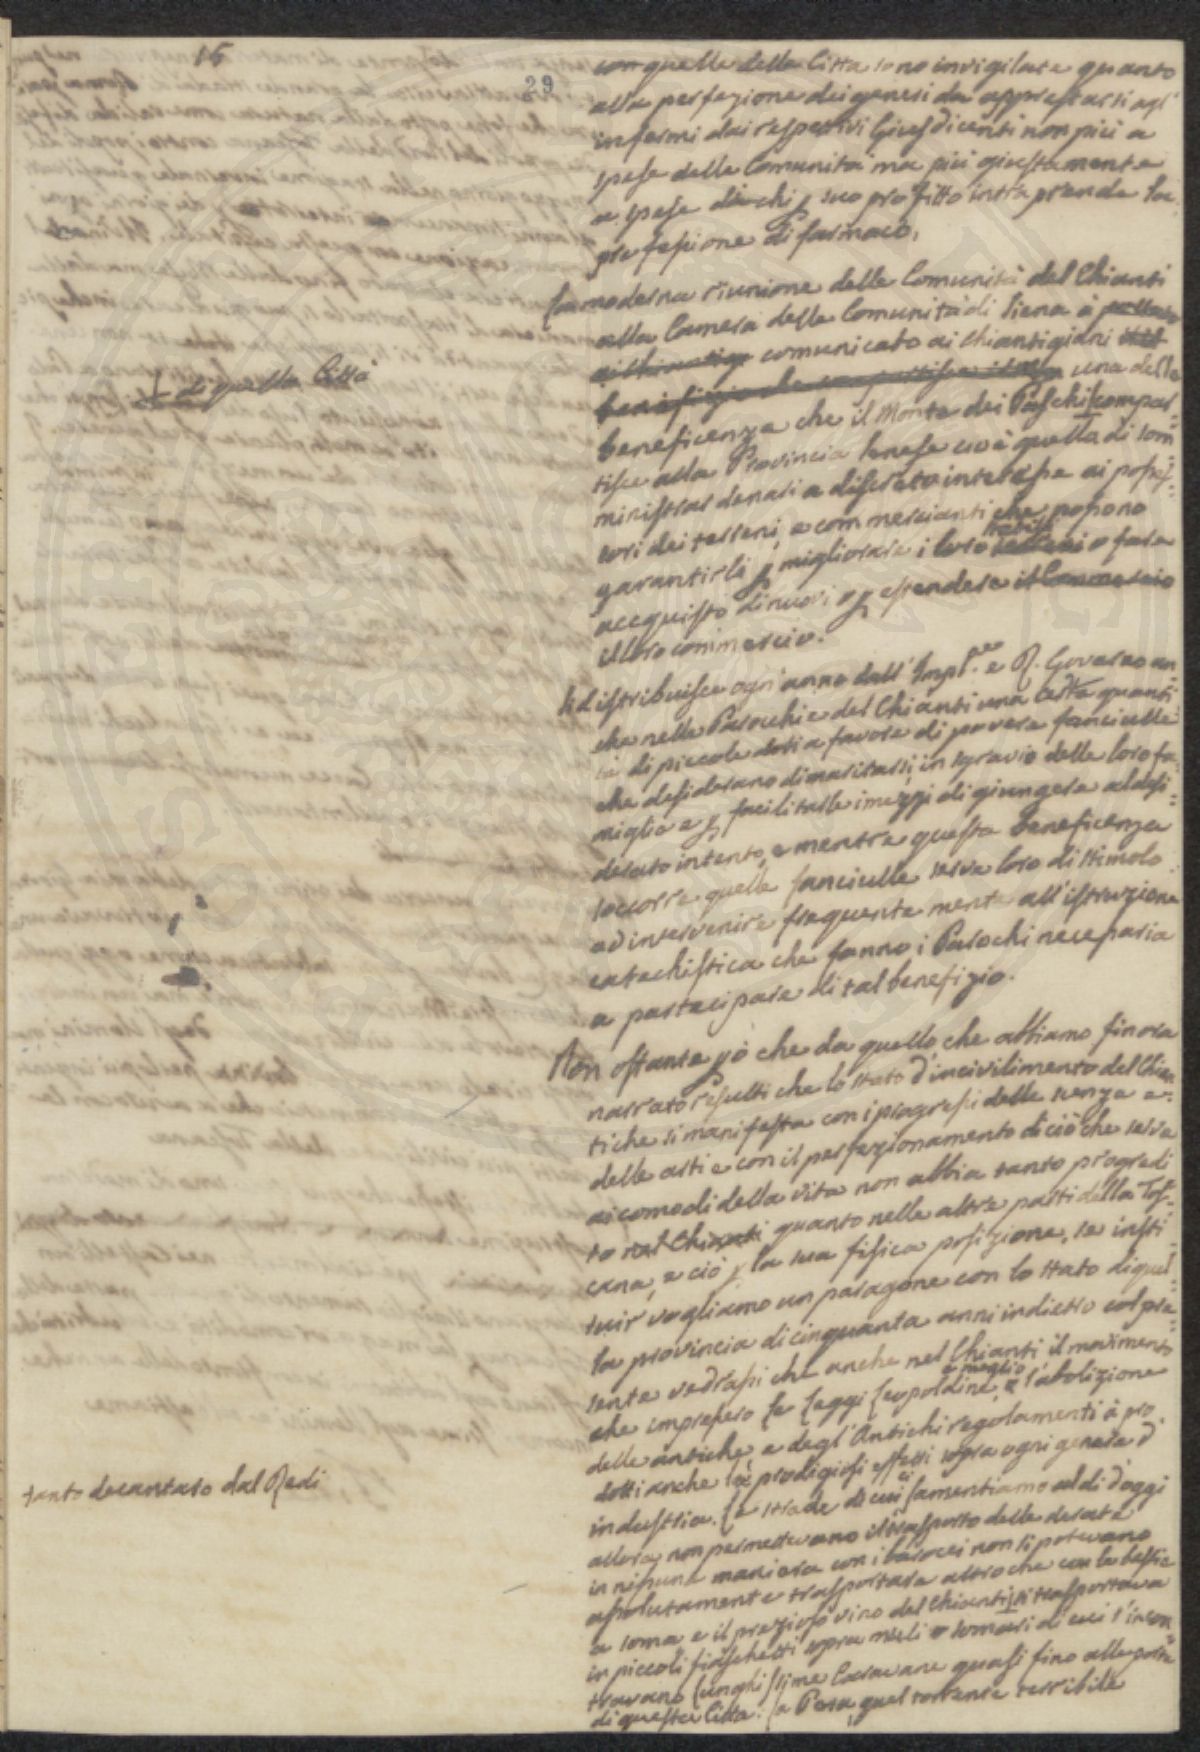 16
29
con quelle della Città sono invigilate quanto
alla perfezione dei generi da apprestarsi agl'
infermi dai respettivi Giusdicenti non più a
spese delle Comunità ma più giustamente
a spese di chi p suo profitto intraprende la
professione di farmaco.
La moderna riunione delle Comunità del Chianti
alla Camera delle Comunità di Siena à
comunicato ai Chiantigiani
una delle
beneficenze che il Monte dei Paschi compar-
tisce alla Provincia Senese cioè quella di som
ministrar denari a discreto interesse ai posses-
sori dei terreni, e commercianti che possono
garantirli p migliorare i loro o fare
acquisto di nuovi o p estendere il Commercio
il loro commercio.
Si distribuisce ogni anno dall' Imp. e R. Governo an
che nelle Parocchie del Chianti una certa quanti
tà di piccole doti a favore di povere fanciulle
che desiderano di maritarsi, in sgravio delle loro fa-
miglie e p facilitarle i mezzi di giungere al desi-
derato intento, e mentre questa beneficenza
soccorre quelle fanciulle serve loro di stimolo
ad intervenire frequentemente all'istruzione
catechistica che fanno i Parochi necessaria
a partecipare di tal benefizio.
Non ostante pò che da quello che abbiamo finora
narrato risulti che lo stato d'incivilimento del Chian
ti che si manifesta con i progressi delle scenze e
delle arti e con il perfezionamento di ciò che serve
ai comodi della vita non abbia tanto progredi
to nel Chianti quanto nelle altre parti della Tos-
cana, e ciò p la sua fisica posizione, se insti-
tuir vogliamo un paragone con lo stato di quel-
la provincia di cinquanta anni indietro col pre-
sente vedrassi che anche nel Chianti il movimento
che impressero le Leggi Leopoldine, e meglio l'abolizione
delle antiche, e degl'Antichi regolamenti à pro
dotti anche là prodigiosi effetti sopra ogni genere d'
industria. Le strade di cui ci lamentiamo al dì d'oggi
allora non permettevano il trasporto delle derrate
in nissuna maniera con i barocci non si potevano
assolutamente trasportare altro che con le bestie
a soma e il prezioso vino del Chianti si trasportava
in piccoli fiaschetti sopra muli o somari di cui s'incon
travano lunghissime Caravane quasi fino alle porte
di questa Città. La Pesa, quel torrente terribile
di quella Città
tanto decantato dal Redi